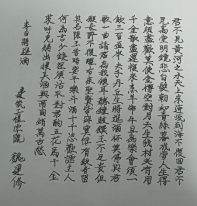 君不見黃河之水天上来奔流到海不復回君不
見高堂明鏡悲白髮朝如青絲暮成雪人生得
意須盡歡莫使金樽空對月天生我材必有用
千金散盡還復來烹羊宰牛且為樂會須一
飲三百杯岑夫子丹丘生將進酒杯莫停與君
歌一曲請君為我傾耳聽鐘鼓饌玉不足貴但
願長醉不復醒古來聖賢皆寂寞惟有飲者留
其名陳王昔時宴平樂斗酒十千恣歡謔主人
何為言少錢徑須沽取對君酌五花馬千金
裘呼兒將出換美酒與爾同銷萬古愁
李白將進酒
建筑工程学院 魏建